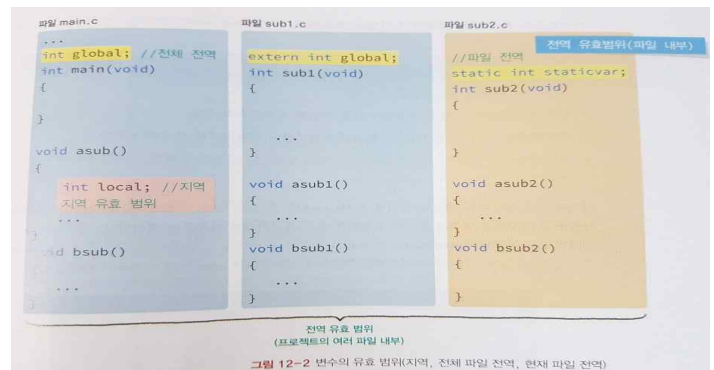 파일 main.c
...
int global; //전체 전역
int main(void)
{
}
void asub()
{
int local; //지역
지역 유효 범위
...
}
void bsub()
{
...
}
파일 sub1.c
extern int global;
int sub1(void)
{
...
}
void asub1()
{
...
}
void bsub1()
{
...
}
파일 sub2.c
전역 유효범위(파일 내부)
//파일 전역
static int staticvar;
int sub2(void)
{
}
void asub2()
{
...
}
void bsub2()
{
}
전역 유효 범위
(프로젝트의 여러 파일 내부)
그림 12-2 변수의 유효 범위(지역, 전체 파일 전역, 현재 파일 전역)